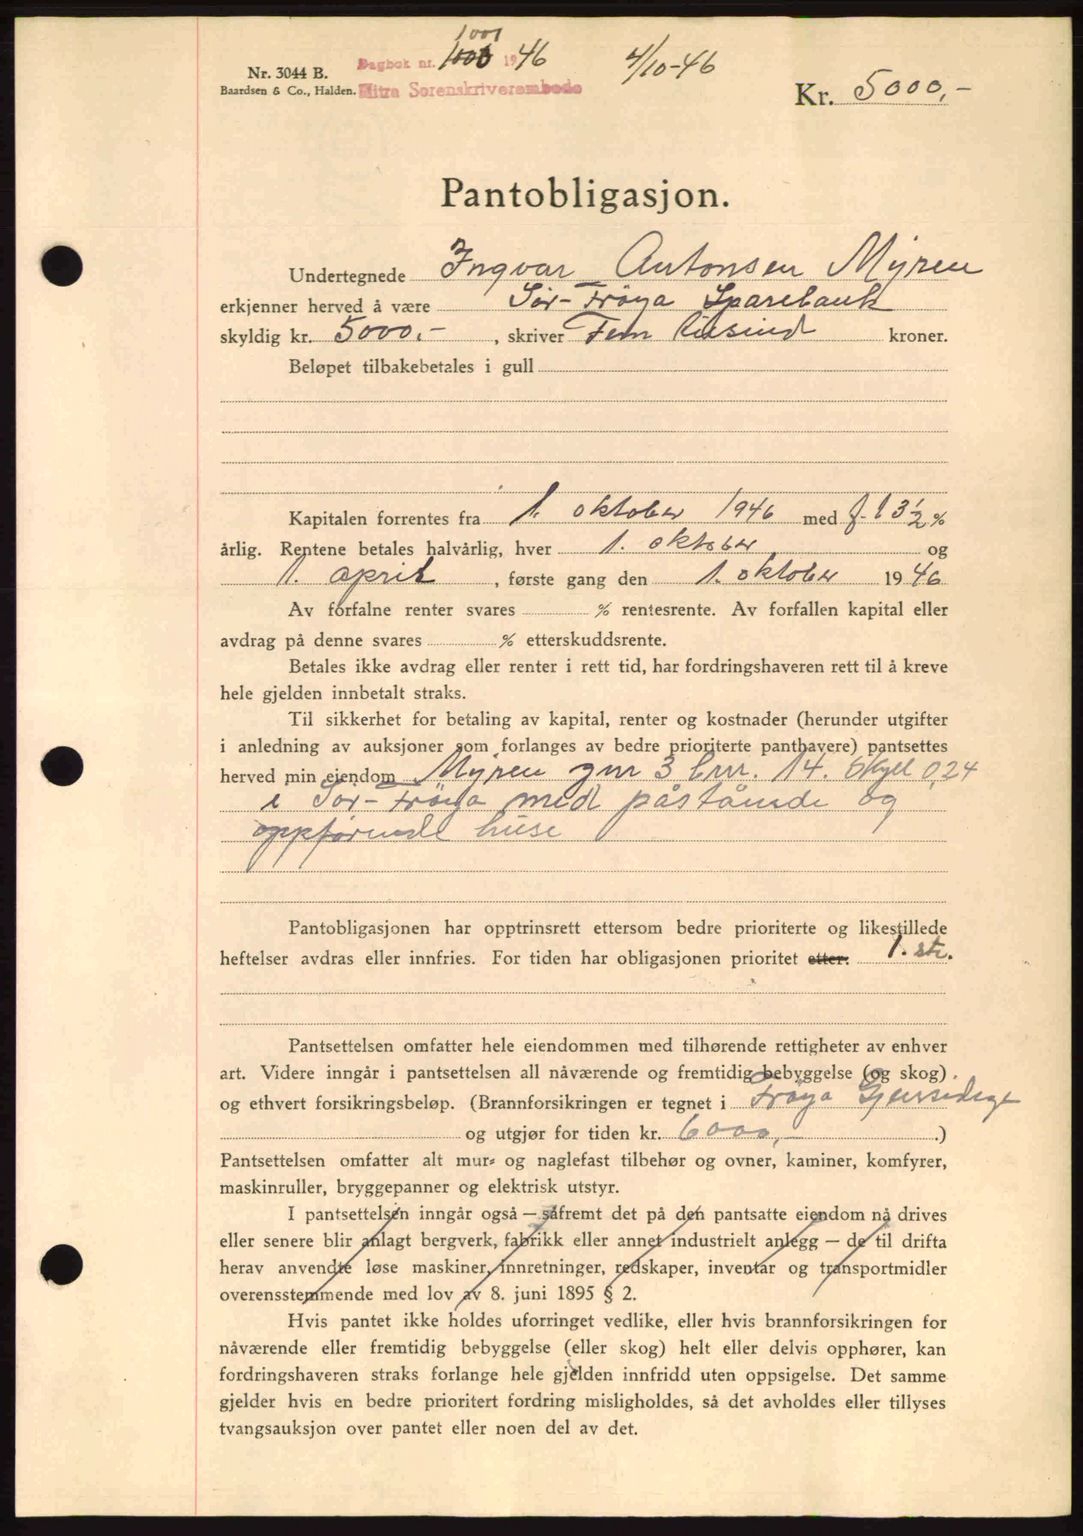 1001
Dagbok nr. 1946
4/10-46
Nr. 3044 B.
Baardsen & Co., Halden.
Hitra Sorenskriverembede
Kr. 5000,-
Pantobligasjon.
Undertegnede Ingvar Antonsen Myren
erkjenner herved å være Sør-Frøya Sparebank
skyldig kr. 5000,- , skriver Fem tusind kroner.
Beløpet tilbakebetales i gull
Kapitalen forrentes fra 1. oktober 1946 med f. t 3 1/2 %
årlig. Rentene betales halvårlig, hver 1. oktober og
1. april , første gang den 1. oktober 1946
Av forfalne renter svares % rentesrente. Av forfallen kapital eller
avdrag på denne svares % etterskuddsrente.
Betales ikke avdrag eller renter i rett tid, har fordringshaveren rett til å kreve
hele gjelden innbetalt straks.
Til sikkerhet for betaling av kapital, renter og kostnader (herunder utgifter
i anledning av auksjoner som forlanges av bedre prioriterte panthavere) pantsettes
herved min eiendom Myren gnr 3 bnr. 14. Skyll 0,24
i Sør-Frøya med påstående og
oppførende huse
Pantobligasjonen har opptrinsrett ettersom bedre prioriterte og likestillede
heftelser avdras eller innfries. For tiden har obligasjonen prioritet etter: 1. ste.
Pantsettelsen omfatter hele eiendommen med tilhørende rettigheter av enhver
art. Videre inngår i pantsettelsen all nåværende og fremtidig bebyggelse (og skog)
og ethvert forsikringsbeløp. (Brannforsikringen er tegnet i Frøya
og utgjør for tiden kr. 6000,- .)
Pantsettelsen omfatter alt mur- og naglefast tilbehør og ovner, kaminer, komfyrer,
maskinruller, bryggepanner og elektrisk utstyr.
I pantsettelsen inngår også — såfremt det på den pantsatte eiendom nå drives
eller senere blir anlagt bergverk, fabrikk eller annet industrielt anlegg — de til drifta
herav anvendte løse maskiner, innretninger, redskaper, inventar og transportmidler
overensstemmende med lov av 8. juni 1895 § 2.
Hvis pantet ikke holdes uforringet vedlike, eller hvis brannforsikringen for
nåværende eller fremtidig bebyggelse (eller skog) helt eller delvis opphører, kan
fordringshaveren straks forlange hele gjelden innfridd uten oppsigelse. Det samme
gjelder hvis en bedre prioritert fordring misligholdes, så det avholdes eller tillyses
tvangsauksjon over pantet eller noen del av det.